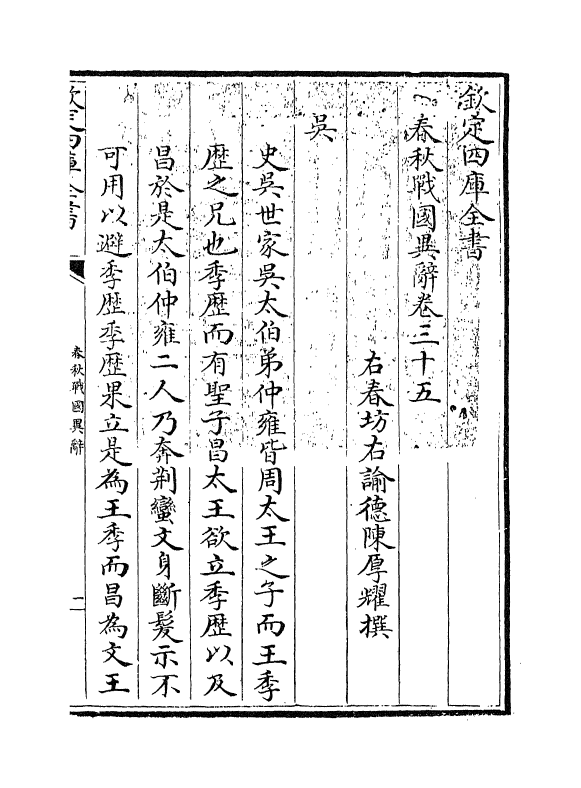 欽定四庫全書
春秋戰國異辭卷三十五
右春坊右諭德陳厚耀撰
吳
史吳世家吳太伯弟仲雍皆周太王之子而王季
歴之兄也季歴而有聖子昌太王欲立季歴以及
昌於是太伯仲雍二人乃奔荆蠻文身斷髮示不
可用以避季歴季歴果立是為王季而昌為文王
欽定四庫全書
春秋戰國異辭
二